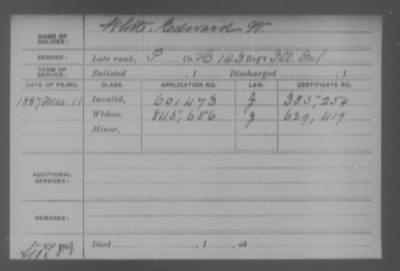 NAME OF SOLDIER: White, Edward W.
SERVICE: Late rank, P Co. H 143 Reg't Ill. Inf
TERM OF SERVICE: Enlisted , 1 Discharged , 1
DATE OF FILING. CLASS. APPLICATION NO. LAW. CERTIFICATE NO.
1887 Mar. 11 Invalid, 601473 J 385,254
Widow, 845,656 J 629,419
Minor,
ADDITIONAL SERVICES:
REMARKS:
Died , 1 , at